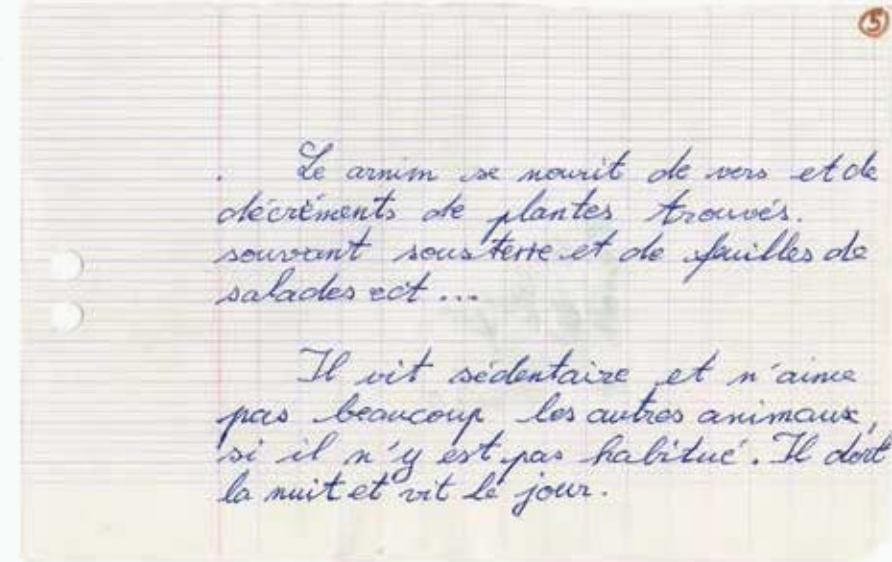 5
. Le arnim se nourit de vers et de
décréments de plantes trouvés.
souvant sous terre et de feuilles de
salades ect ...
Il vit sédentaire et n'aime
pas beaucoup les autres animaux,
si il n'y est pas habitué. Il dort
la nuit et vit le jour.